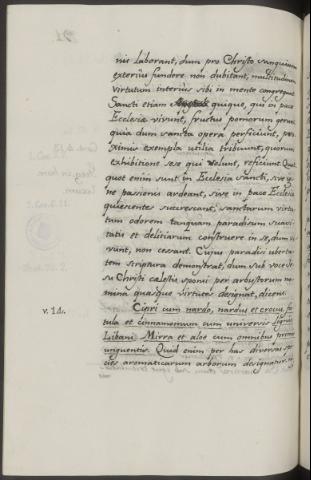 nii laborant, dum pro Christo sanguinem
exterius fundere non dubitant, multitudinem
virtutum interius sibi in mente congregant.
Sancti etiam quique, qui in pace
Ecclesiæ vivunt, fructus pomorum gerunt
quia dum sancta opera perficiunt, pro-
ximis exempla utilia tribuunt, quorum
exhibitione sese qui volunt, reficiunt. Quot-
quot enim sunt in Ecclesia sancti, sive ig-
ne passionis ardeant, sive in pace Ecclesiæ
quiescentes succrescant, sanctarum virtu-
tum odorem tanquam paradisum suavi-
tatis et delitiarum construere in se, dum vi-
vunt, non cessant. Cujus paradisi uberta-
tem scriptura demonstrat, dum sub voce Je-
su Christi cælestis sponsi per arbustorum no-
mina quasque virtutes designat, dicens.
v. 14. Cipri cum nardo, nardus et crocus, fis-
tula et cinnamomum cum universis lignis
Libani Mirra et aloe cum omnibus primis
unguentis. Quid enim per has diversas spe-
cies aromaticarum arborum designatur,